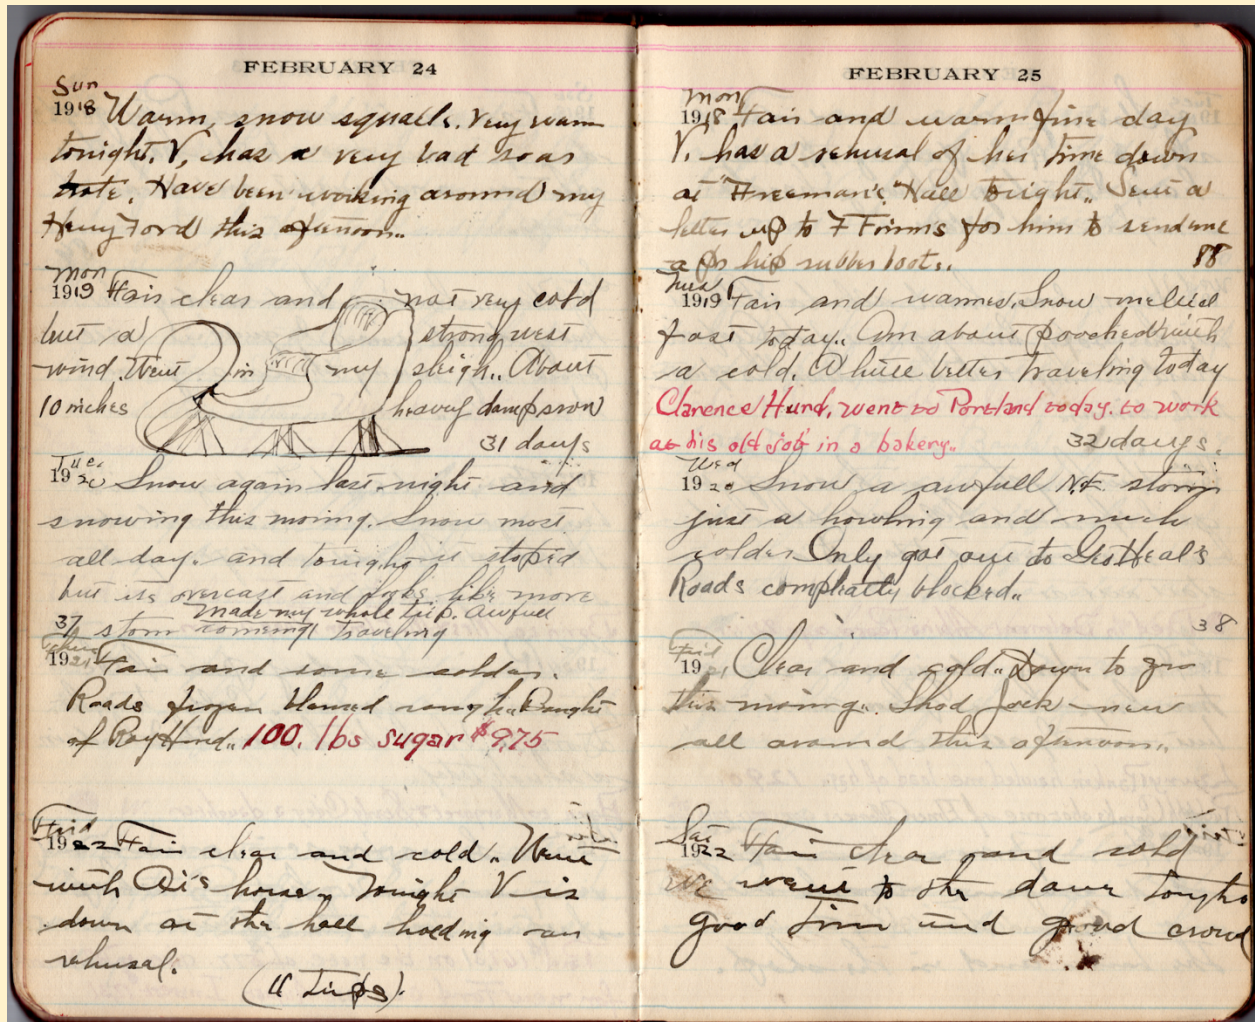 FEBRUARY 24
Sun
1918 Warm, snow squalls. Very warm
tonight. V, has a very bad soar
trote. Have been working around my
Heny Ford this afernoon..
Mon
1919 Fair clear and not very cold
but a strong west
wind. Went in my sleigh.. About
10 inches heavy damp snow
31 days
Tue.
1920 Snow again last night and
snowing this moring. Snow most
all day. and tonight it stopid
but its overcast and looks like more
made my whole trip. awfull
37 storm comeing traveling
1921 Fair and some colder.
Roads frozen blamed rough.. Bought
of Ray Hurd.. 100. lbs sugar $9.75
Frid
1922 Fair clear and cold.. Went
with Ai's horse. Tonight V is
down at the hall holding an
rehusal.
(11 Tirps).
FEBRUARY 25
Mon
1918 Fair and warm fine day
V. has a rehusal of her time down
at "Freeman's" Hall toight.. Sent a
letter up to F Frinns for him to send me
a pr hip rubber boots.. 88
Tues
1919 Fair and warmer. Snow melted
fast today.. Am about pooched with
a cold. A little better traveling today
Clarence Hurd, went to Portland today. to work
at his old job in a bakery.. 32 days.
Wed
1920 Snow a awfull N.E. storm
just a howling and much
colder Only got out to Geo Heal's
Roads compleatly blocked..
38
Frid
1921 Clear and cold.. Down to gro
this moring.. Shod Jack new
all around this afernoon..
Sat
1922 Fair clear and cold
we went to the dance toight
good time and good crowd